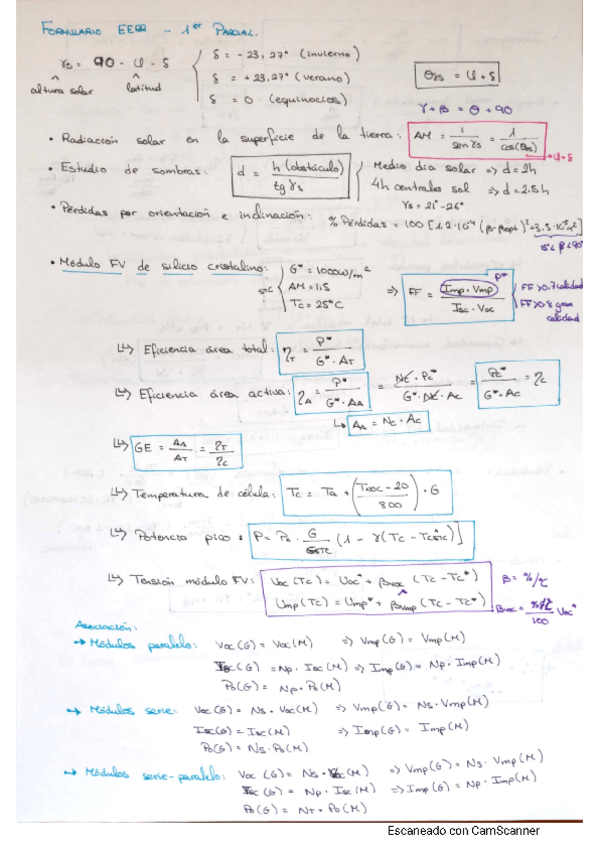 FORMULARIO EERR - 1er PARCIAL.
γs = 90 - φ - δ
altura solar
latitud
δ = -23,27° (invierno)
δ = +23,27° (verano)
δ = 0 (equinocios)
θzs = φ + δ
γ + β = θ + 90
• Radiación solar en la superficie de la tierra: AM = 1 / sen γs = 1 / cos(θzs)
φ + δ
• Estudio de sombras: d = h (obstáculo) / tg γs
Medio día solar => d = 2h
4h centrales sol => d = 2.5h
γs = 21° - 26°
• Pérdidas por orientación e inclinación: % Pérdidas = 100 [1.2·10⁻⁴ (β-βopt)² + 3.5·10⁻⁵α²]
15 < β < 90°
• Módulo FV de silicio cristalino:
STC
G* = 1000w/m²
AM = 1.5
Tc = 25°C
=> FF = Imp · Vmp / Isc · Voc
P*
FF > 0.7 calidad
FF > 0.8 gran calidad
↳ Eficiencia área total: ηT = P* / G* · AT
↳ Eficiencia área activa: ηA = P* / G* · AA = Nc · Pc* / G* · Nc · Ac = Pc* / G* · Ac = ηc
↳ AA = Nc · Ac
↳ GE = AA / AT = ηT / ηc
↳ Temperatura de célula: Tc = Ta + (TNOC - 20 / 800) · G
↳ Potencia pico: P = Po · G / GSTC (1 - γ(Tc - TcSTC*)]
↳ Tensión módulo FV: Voc (Tc) = Voc* + βvoc (Tc - Tc*)
Vmp (Tc) = Vmp* + βvmp (Tc - Tc*)
β = %/°C
βvoc = %/°C / 100 Voc*
Asociación:
→ Módulos paralelo: Voc(G) = Voc(M) => Vmp(G) = Vmp(M)
Isc(G) = Np · Isc(M) => Imp(G) = Np · Imp(M)
Po(G) = Np · Po(M)
→ Módulos serie: Voc(G) = Ns · Voc(M) => Vmp(G) = Ns · Vmp(M)
Isc(G) = Isc(M) => Imp(G) = Imp(M)
Po(G) = Ns · Po(M)
→ Módulos serie-paralelo: Voc (G) = Ns · Voc(M) => Vmp(G) = Ns · Vmp(M)
Isc (G) = Np · Isc(M) => Imp(G) = Np · Imp(M)
Po(G) = NT · Po(M)
Escaneado con CamScanner